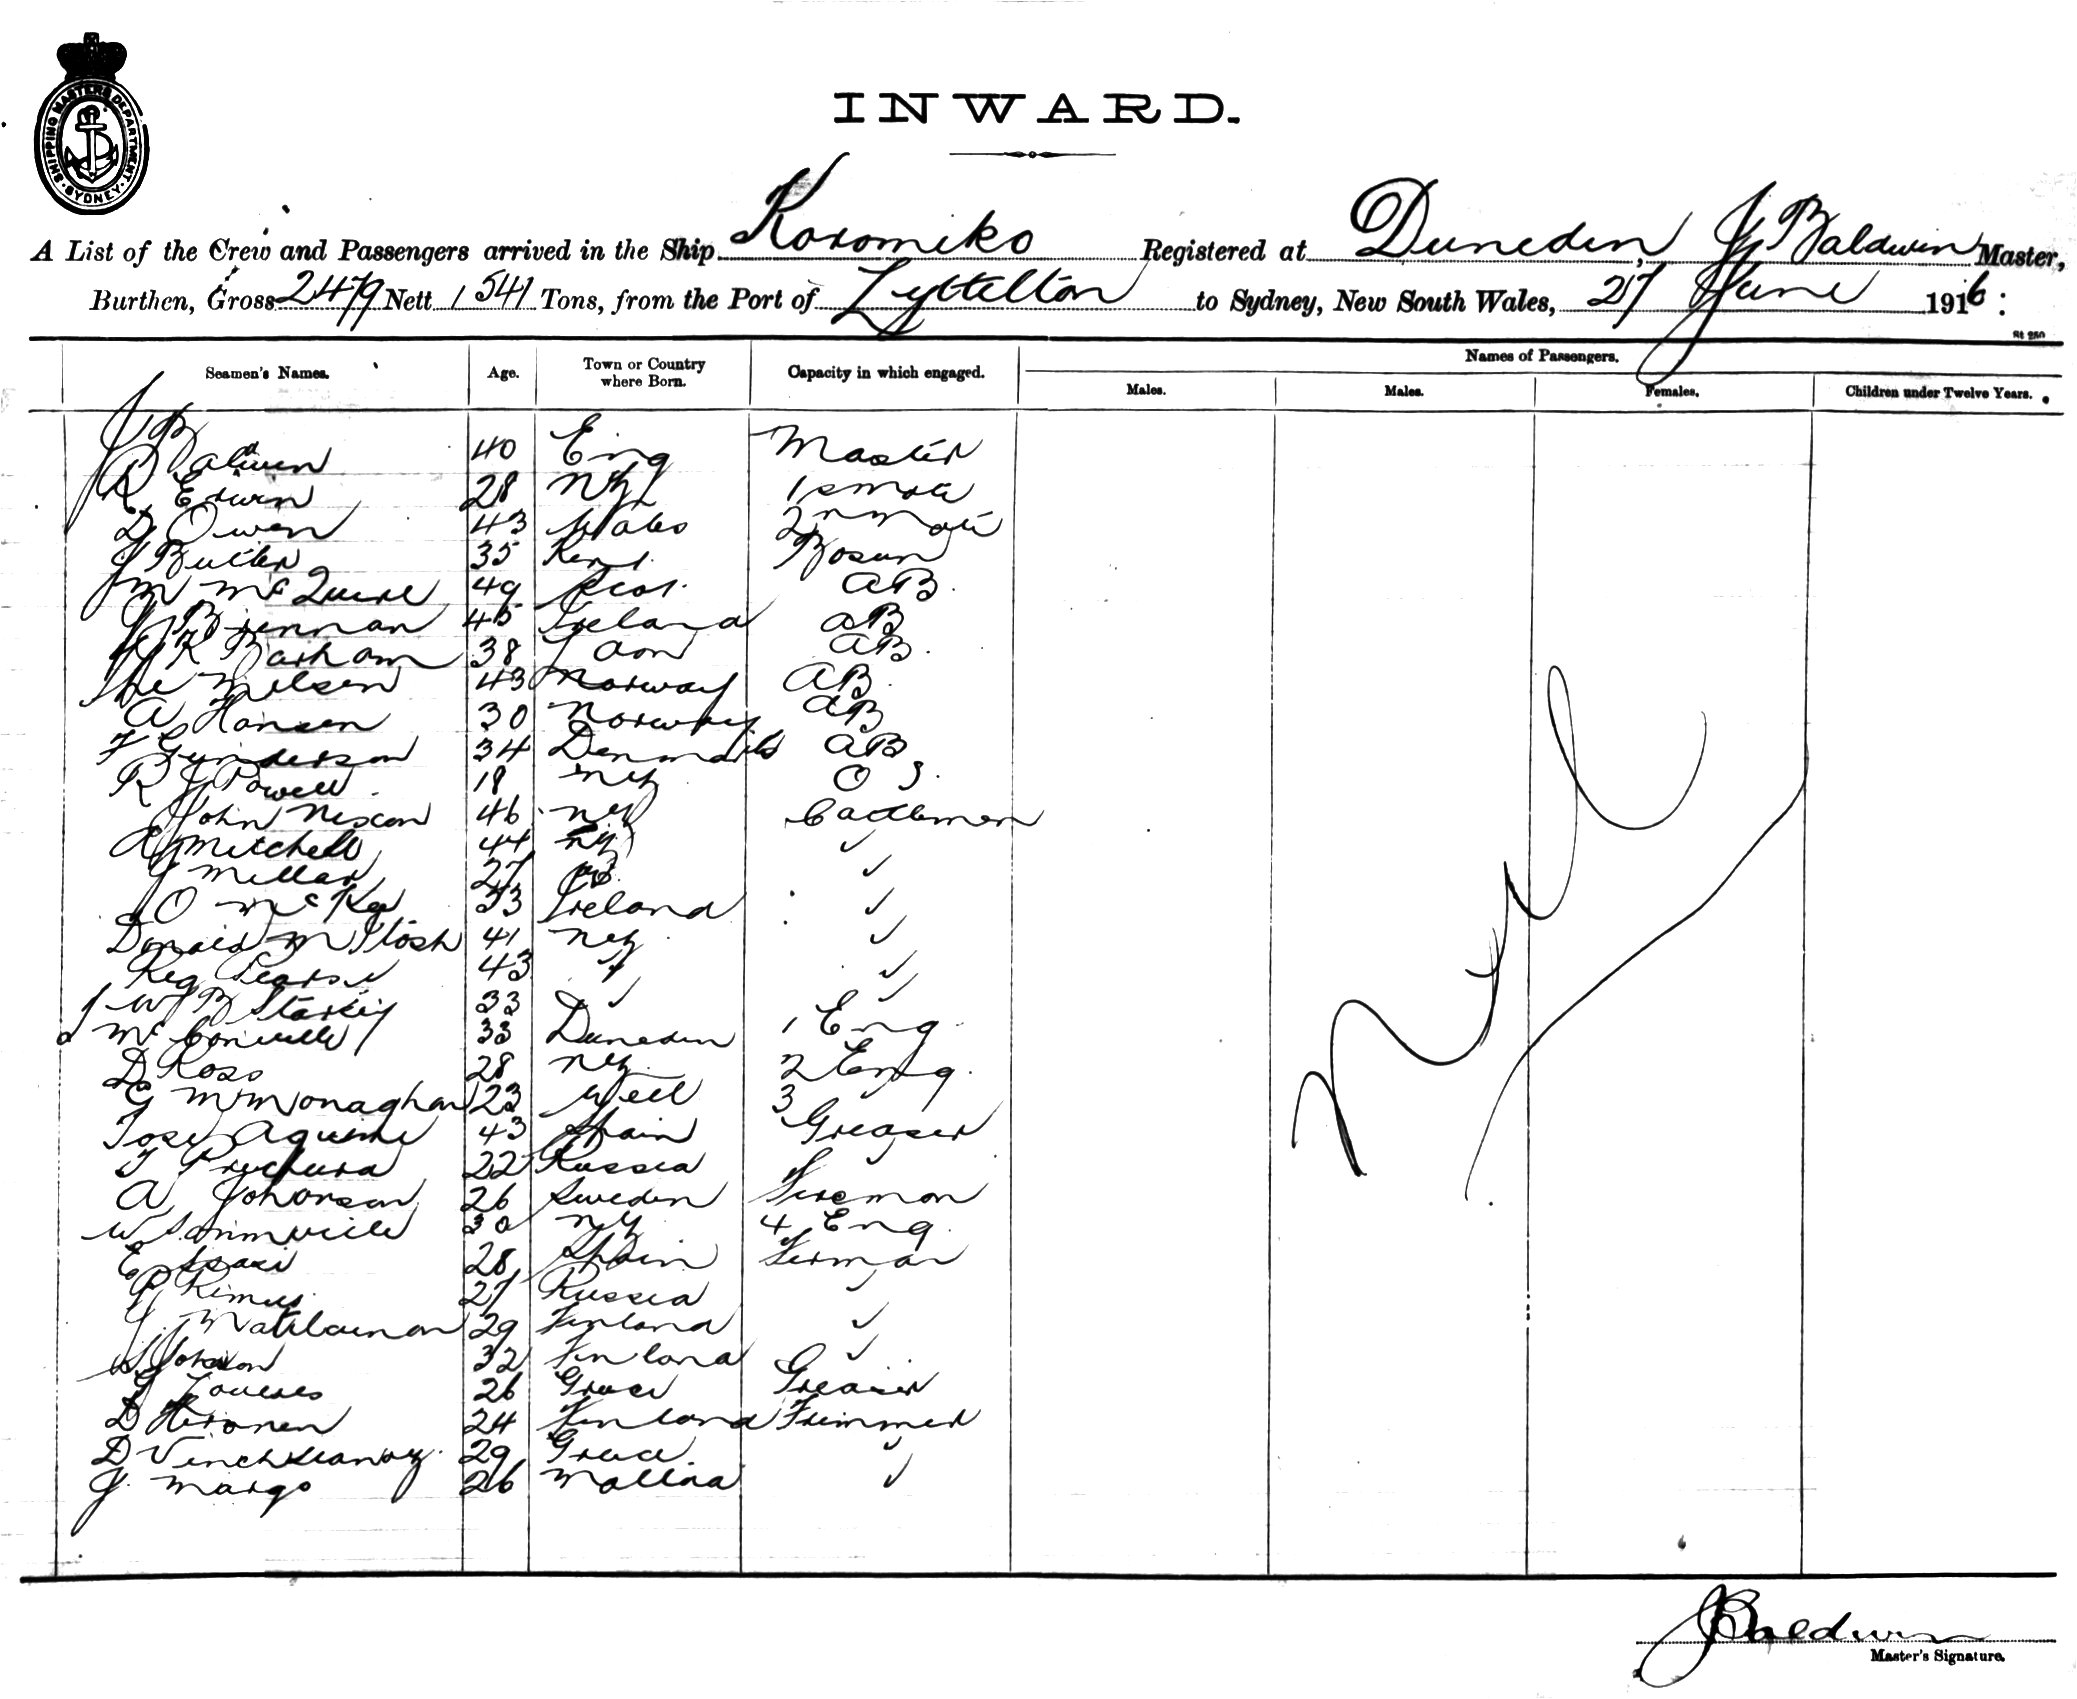 SHIPPING MASTERS DEPARTMENT. SYDNEY
INWARD.
A List of the Crew and Passengers arrived in the Ship Koromiko Registered at Dunedin, J Baldwin Master,
Burthen, Gross 2479 Nett 1541 Tons, from the Port of Lyttelton to Sydney, New South Wales, 27 June 1916:
St 250
Seamen's Names. Age. Town or Country where Born. Capacity in which engaged. Names of Passengers.
Males. Males. Females. Children under Twelve Years.
J Baldwin 40 Eng Master
R Edwin 28 NZ 1s mate
D Owen 43 Wales 2n mate
J Butler 35 Kent Bosun
49 Scot. AB.
J Brennan 45 Ireland AB
Barham 38 AB.
Nelsen 43 Norway AB.
A Hansen 30 Norway AB
F Gunderson 34 AB
R J Powell 18 NZ O S.
John Nixon 46 NZ Cattlemen
Mitchell 44 NZ ✓
J Millar 27 ✓
O McKay 33 Ireland ✓
Donald 41 NZ ✓
Reg Pearse 43 ✓ ✓
W B Starkey 33 ✓ ✓
33 Dunedin 1 Eng
D Ross 28 NZ 2 Eng.
McMonaghan 23 Well 3 ✓
Jose Aguirre 43 Spain Greaser
22 Russia ✓
A Johansen 26 Sweden Fireman
W 30 NZ 4 Eng.
E 28 Spain Firman
Rimus 27 Russia ✓
29 Finland ✓
Johnson 32 Finland ✓
26 Greece Greaser
D Hironen 24 Finland Trimmer
D 29 Greece ✓
J. Margo 26 ✓
Nil
J Baldwin
Master's Signature.